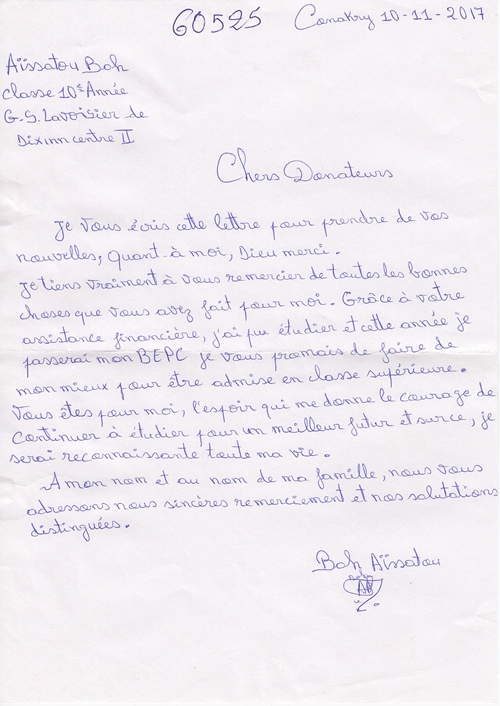 60525
Conakry 10-11-2017
Aïssatou Bah
Classe 10e Année
G.S. Lavoisier de
Dixinn centre II
Chers Donateurs
Je vous écris cette lettre pour prendre de vos
nouvelles, Quant-à moi, Dieu merci.
Je tiens vraiment à vous remercier de toutes les bonnes
choses que vous avez fait pour moi. Grâce à votre
assistance financière, j'ai pu étudier et cette année je
passerai mon BEPC je vous promais de faire de
mon mieux pour être admise en classe supérieure.
Vous êtes pour moi, l'espoir qui me donne le courage de
Continuer à étudier pour un meilleur futur et surce, je
serai reconnaissante toute ma vie.
A mon nom et au nom de ma famille, nous vous
adressons nous sincères remerciement et nos salutations
distinguées.
Bah Aïssatou